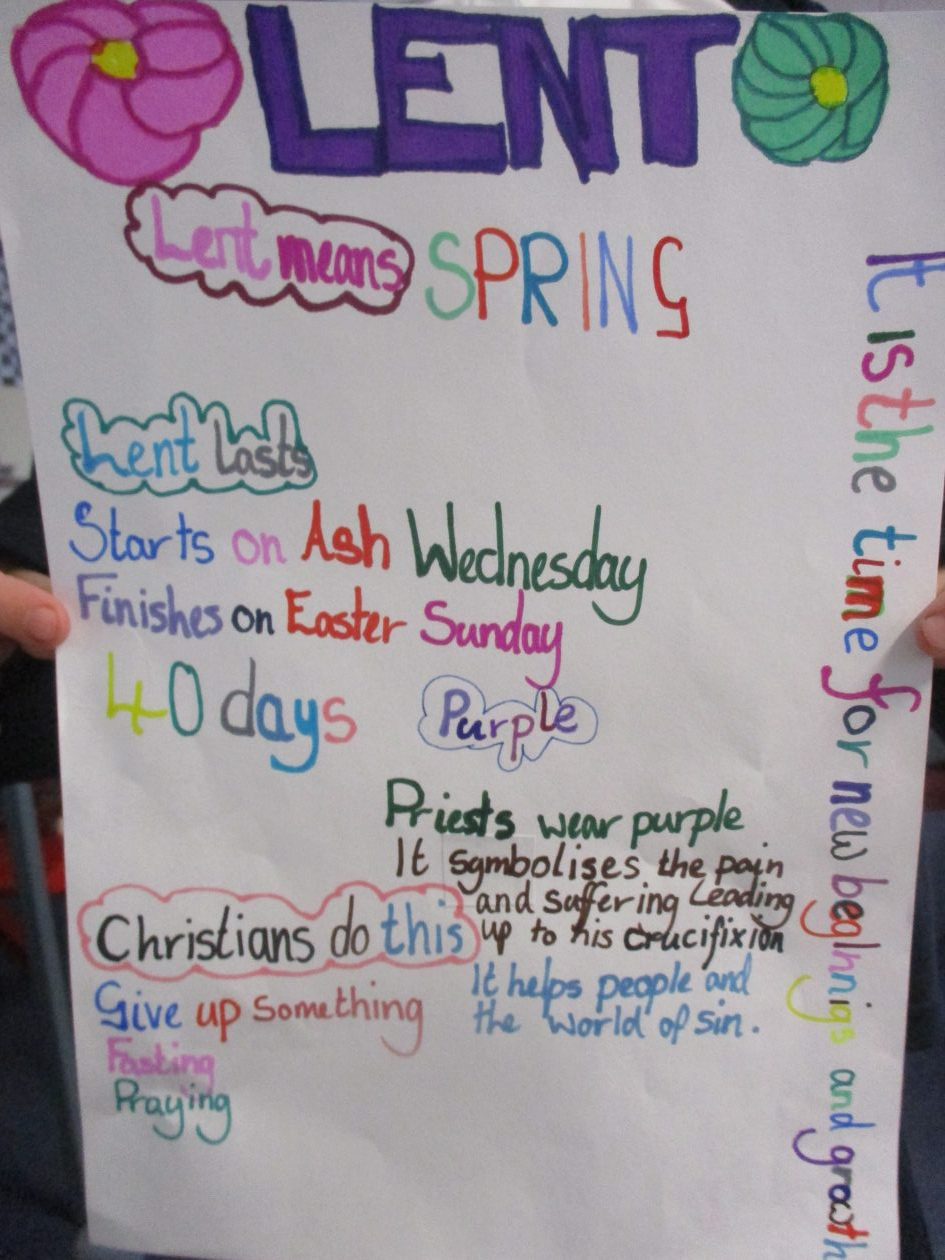 LENT
Lent means SPRING
Lent Lasts
Starts on Ash Wednesday
Finishes on Easter Sunday
40 days
Purple
Priests wear purple
It symbolises the pain
and suffering Leading
up to his crucifixion
It helps people and
the world of sin.
Christians do this
Give up something
Fasting
Praying
It is the time for new beginnigs and growth